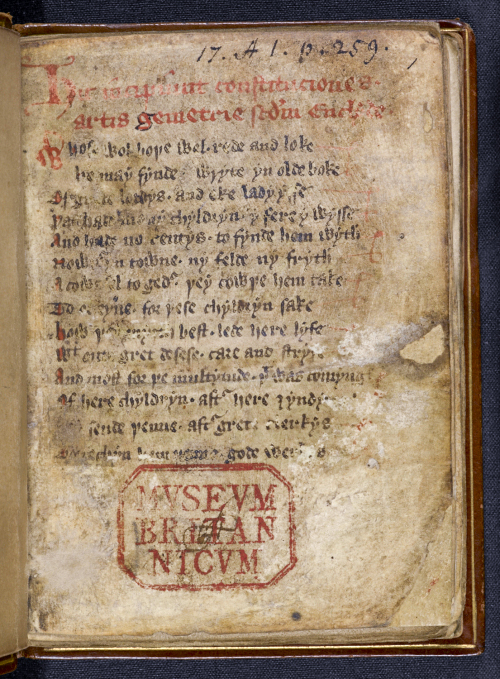 17. A 1. p. 259.
Hic incipiunt constituciones
artis gemetrie scdm Euclyde
Whose wol bothe wel rede and loke
he may fynde wryte yn olde boke
Of grete lordys. and eke ladyysse
þat hade mony chyldryn. y fere y wysse
And hade no rentys. to fynde hem wyth
Nowþer yn towne. ny felde ny fryth
A cownsel to ged' þey cowþe hem take
To ordeyne. for þese chyldryn sake
how þey best. lede here lyfe
Wt oute gret desese. care and stryfe
And most for þe multytude. þt was comynge
Of here chyldryn. aft' here
sende þenne. aft' grete clerkys
techyn hem gode werkys
MVSEVM
BRITAN
NICVM